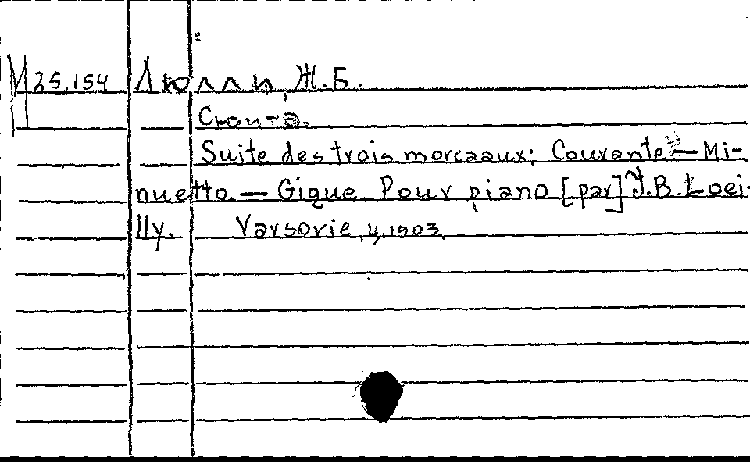 М 25.154 Люлли, Ж.Б.
Сюита.
Suite des trois morceaux: Courante — Mi-
nuetto. — Gigue Pour piano [par] J.B. Loei-
lly. Varsovie, 1903.